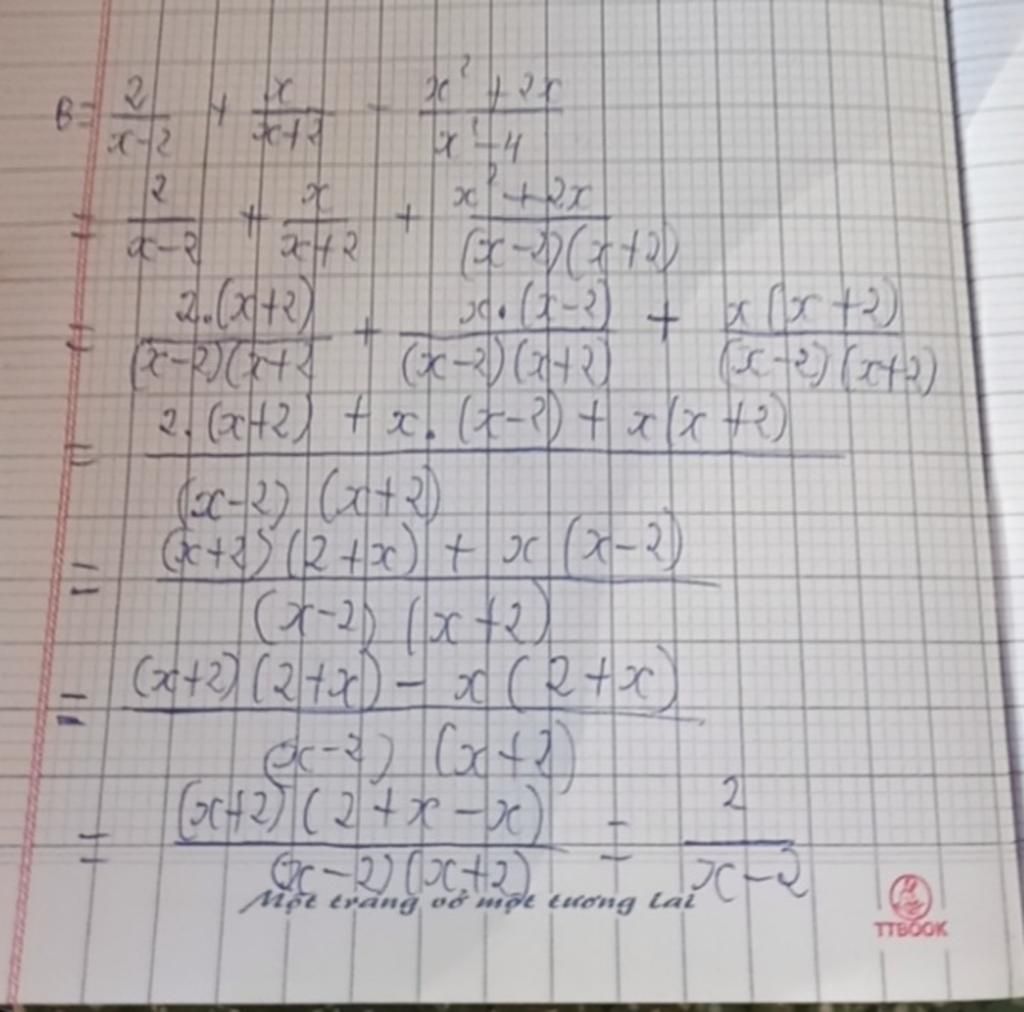 B = \frac{2}{x-2} + \frac{x}{x+2} - \frac{x^2+2x}{x^2-4}
= \frac{2}{x-2} + \frac{x}{x+2} + \frac{x^2+2x}{(x-2)(x+2)}
= \frac{2.(x+2)}{(x-2)(x+2} + \frac{x.(x-2)}{(x-2)(x+2)} + \frac{x(x+2)}{(x-2)(x+2)}
= \frac{2.(x+2) + x.(x-2) + x(x+2)}{(x-2)(x+2)}
= \frac{(x+2)(2+x) + x(x-2)}{(x-2)(x+2)}
= \frac{(x+2)(2+x) - x(2+x)}{(x-2)(x+2)}
= \frac{(x+2)(2+x-x)}{(x-2)(x+2)} = \frac{2}{x-2}
Một trang vở một tương lai
TTBOOK